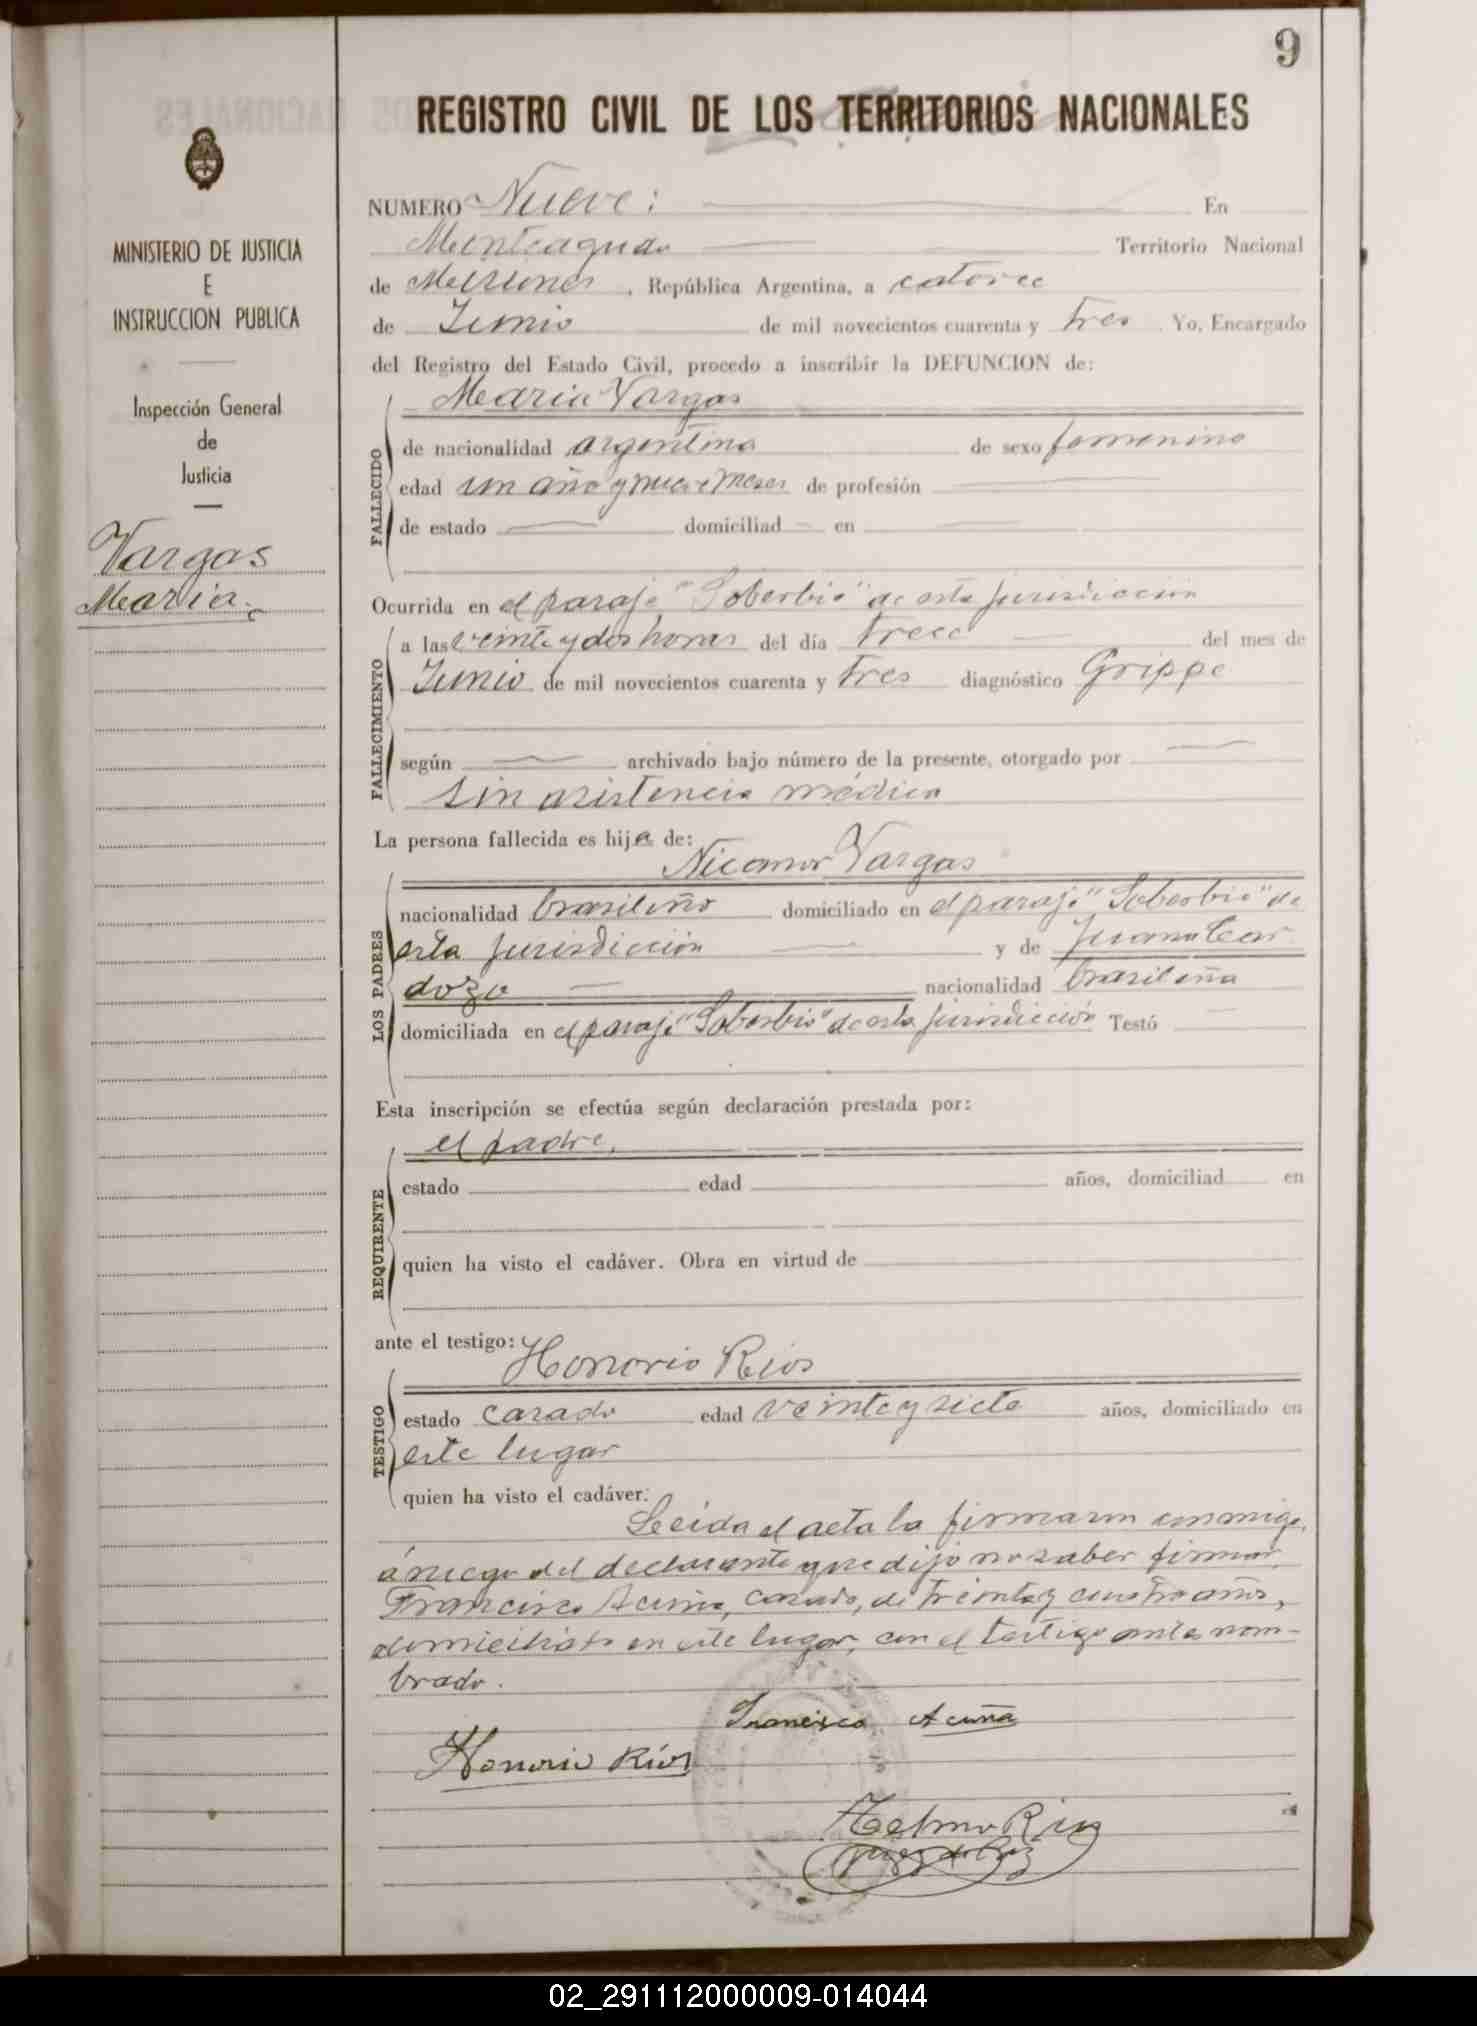 9
REGISTRO CIVIL DE LOS TERRITORIOS NACIONALES
MINISTERIO DE JUSTICIA
E
INSTRUCCION PUBLICA
Inspección General
de
Justicia
Vargas
Maria.
NUMERO Nueve: En
Monteagudo Territorio Nacional
de Misiones, República Argentina, a catorce
de Junio de mil novecientos cuarenta y tres. Yo, Encargado
del Registro del Estado Civil, procedo a inscribir la DEFUNCION de:
Maria Vargas
FALLECIDO
de nacionalidad argentina de sexo femenino
edad un año y nueve meses de profesión
de estado domiciliad en
Ocurrida en el paraje "Soberbio" de esta jurisdicción
FALLECIMIENTO
a las veinte y dos horas del día trece del mes de
Junio de mil novecientos cuarenta y tres diagnóstico Grippe
según archivado bajo número de la presente, otorgado por
sin asistencia médica
La persona fallecida es hija de:
Nicanor Vargas
LOS PADRES
nacionalidad brasileño domiciliado en el paraje "Soberbio" de
esta jurisdicción y de Juana Car
dozo nacionalidad brasileña
domiciliada en el paraje "Soberbio" de esta jurisdicción Testó
Esta inscripción se efectúa según declaración prestada por:
el padre,
REQUIRENTE
estado edad años, domiciliad en
quien ha visto el cadáver. Obra en virtud de
ante el testigo:
Honorio Rios
TESTIGO
estado casado edad veinte y siete años, domiciliado en
este lugar
quien ha visto el cadáver.
Leída el acta la firmaron conmigo,
á ruego del declarante que dijo no saber firmar,
Francisco Acuña, casado, de treinta y cuatro años,
domiciliado en este lugar, con el testigo antes nom-
brado.
Francisco Acuña
Honorio Ríos
Telmo Ríos
Juez de Paz
02_291112000009-014044